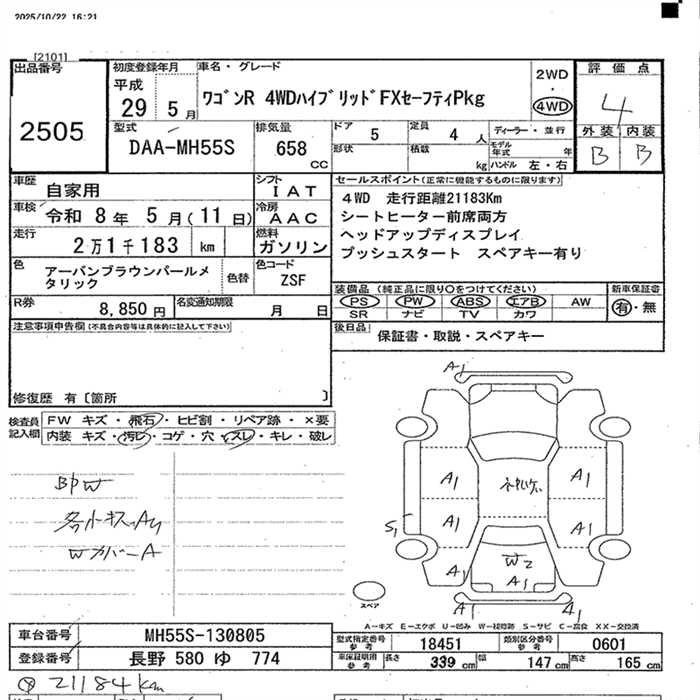 2025/10/22 16:21
[2101]
出品番号
2505
初度登録年月
平成
29 5 月
車名・グレード
ワゴンR 4WDハイブリッドFXセーフティPkg
2WD
・
4WD
評価点
4
外装 内装
B B
型式
DAA-MH55S
排気量
658 CC
ドア 5
定員 4 人
形状
積載 kg
ディーラー・並行
モデル年式 年
ハンドル 左・右
車歴
自家用
シフト
IAT
車検
令和 8年 5月(11日)
冷房
AAC
走行
2万1千183 km
燃料
ガソリン
色
アーバンブラウンパールメタリック
色替
色コード
ZSF
R券
8,850 円
名変通知期限
月 日
セールスポイント(正常に機能するものに限ります)
4WD 走行距離21183Km
シートヒーター前席両方
ヘッドアップディスプレイ
プッシュスタート スペアキー有り
装備品 (純正品に限り○をつけてください)
PS PW ABS エアB AW
SR ナビ TV カワ
新車保証書
有・無
後日品
保証書・取説・スペアキー
注意事項申告欄(不具合内容等は具体的に記入して下さい)
修復歴 有〔箇所 〕
検査員
記入欄
FW キズ・飛石・ヒビ割・リペア跡・×要
内装 キズ・汚レ・コゲ・穴・スレ・キレ・破レ
BPW
各小キズA4
WカバーA
A1
A1
A1
A1
A1
S1
A1
W2
A1
A1
スペア
A-キズ E-エクボ U-凹み W-補修跡 S-サビ C-腐食 XX-交換済
車台番号
MH55S-130805
登録番号
長野 580 ゆ 774
型式指定番号
参考
18451
類別区分番号
参考
0601
車庫証明用
参考
長さ 339 cm 幅 147 cm 高さ 165 cm
21184km